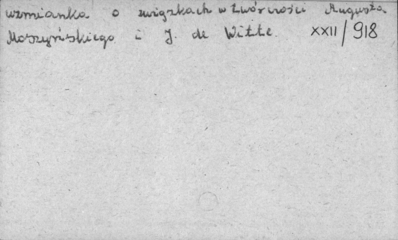 wzmianka o związkach w twórczości Augusta
Moszyńskiego i J. de Witte. XXII/918